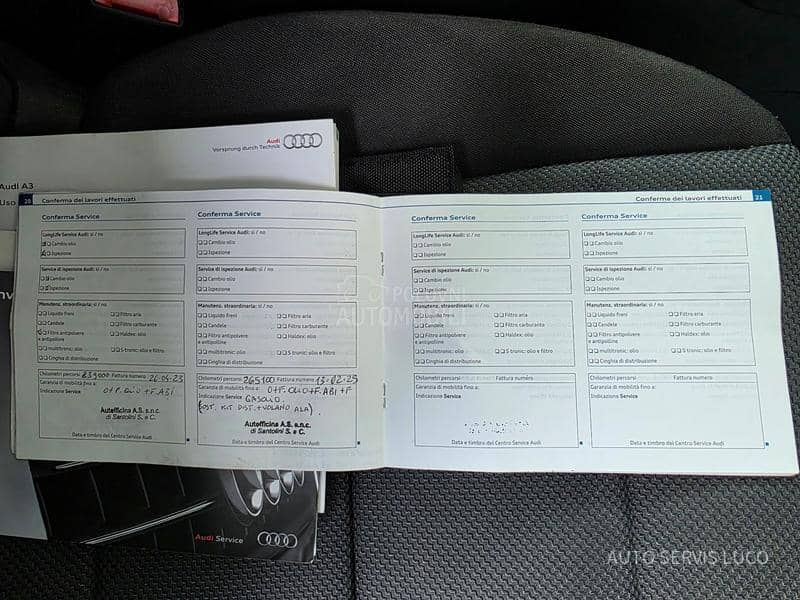 Audi
Vorsprung durch Technik
Audi A3
20 Conferma dei lavori effettuati
Conferma Service
LongLife Service Audi: sì / no
Cambio olio
Ispezione
Service di ispezione Audi: sì / no
Cambio olio
Ispezione
Manutenz. straordinaria: sì / no
Liquido freni
Filtro aria
Candele
Filtro carburante
Filtro antipolvere e antipolline
Haldex: olio
multitronic: olio
S tronic: olio e filtro
Cinghia di distribuzione
Chilometri percorsi 239000 Fattura numero 26-05-23
Garanzia di mobilità fino a:
Indicazione Service O+F.OLIO+F.ABI
Autofficina A.S. s.n.c.
di Santolini S. e C.
Data e timbro del Centro Service Audi
Conferma Service
LongLife Service Audi: sì / no
Cambio olio
Ispezione
Service di ispezione Audi: sì / no
Cambio olio
Ispezione
Manutenz. straordinaria: sì / no
Liquido freni
Filtro aria
Candele
Filtro carburante
Filtro antipolvere e antipolline
Haldex: olio
multitronic: olio
S tronic: olio e filtro
Cinghia di distribuzione
Chilometri percorsi 265100 Fattura numero 13-02-25
Garanzia di mobilità fino a: O+F.OLIO+F.ABI+F.
Indicazione Service GASOLIO.
(SOST. KIT DIST.+VOLANO ALA).
Autofficina A.S. s.n.c.
di Santolini S. e C.
Data e timbro del Centro Service Audi
Conferma dei lavori effettuati 21
Conferma Service
LongLife Service Audi: sì / no
Cambio olio
Ispezione
Service di ispezione Audi: sì / no
Cambio olio
Ispezione
Manutenz. straordinaria: sì / no
Liquido freni
Filtro aria
Candele
Filtro carburante
Filtro antipolvere e antipolline
Haldex: olio
multitronic: olio
S tronic: olio e filtro
Cinghia di distribuzione
Chilometri percorsi Fattura numero
Garanzia di mobilità fino a:
Indicazione Service
Data e timbro del Centro Service Audi
Conferma Service
LongLife Service Audi: sì / no
Cambio olio
Ispezione
Service di ispezione Audi: sì / no
Cambio olio
Ispezione
Manutenz. straordinaria: sì / no
Liquido freni
Filtro aria
Candele
Filtro carburante
Filtro antipolvere e antipolline
Haldex: olio
multitronic: olio
S tronic: olio e filtro
Cinghia di distribuzione
Chilometri percorsi Fattura numero
Garanzia di mobilità fino a:
Indicazione Service
Data e timbro del Centro Service Audi
Audi Service
POLOVNI
AUTOMOBILI
AUTO SERVIS LUCO